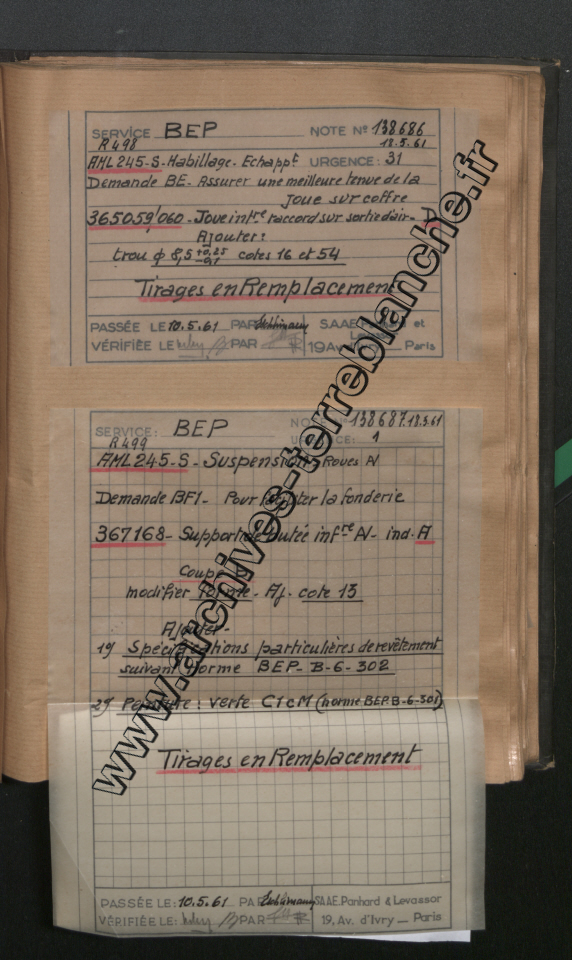 SERVICE BEP NOTE Nº 138686
R498 18.5.61
AML 245-S-Habillage-Echappt URGENCE: 31
Demande BE- Assurer une meilleure tenue de la
Joue sur coffre
365059/060 - Joue intre raccord sur sortie d'air-
Ajouter:
trou ϕ 8,5 +0,25 -0,1 cotes 16 et 54
Tirages en Remplacement
PASSÉE LE 10.5.61 PAR S.A.A.E. et
VÉRIFIÉE LE PAR 19 Av. Paris
SERVICE: BEP 138687 18.5.61
R499 URGENCE: 1
AML 245-S - Suspension Roues AV
Demande BF1- Pour la fonderie
367168- Support de butée infre AV- ind. A
Coupe
modifier forme - Aj. cote 13
Ajouter-
1º/ Spécifications particulières de revêtement
suivant norme BEP-B-6-302
2º/ Peinture : verte C1cM (norme BEP.B-6-301)
Tirages en Remplacement
PASSÉE LE: 10.5.61 PAR S.A.A.E. Panhard & Levassor
VÉRIFIÉE LE: PAR 19, Av. d'Ivry — Paris
www.archives-terreblanche.fr